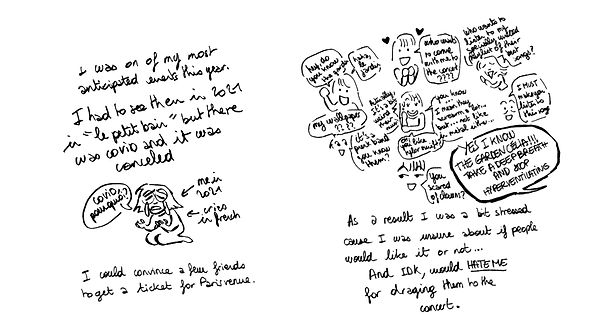 I was on of my most
anticipated events this year.
I had to see them in 2021
in "le petit bain" but there
was covid and it was
canceled
COVID,
pourquoi?
me in
2021
cries in
french
I could convince a few friends
to get a ticket for Parisvenue.
hey, do
you know
the garden
hate,
le
jardin,
who wants
to come
with me to
the concert
????
Who wants to
listen to my
specially
playlist of their
best
songs?
my wallpaper
????
Actually,
it's a
it's a
punk band
you know
them?
you know
I mean they
scream a bit...
but... not like
a metal
you like
I MUST
make you
listen to
this song
You
scared
of clowns?
YES I KNOW
THE GARDEN CÉLIA!!
TAKE A DEEP BREATH
AND STOP
HYPERVENTILATING
As a result I was a bit stressed
cause I was unsure about if people
would like it or not...
And IDK, would HATE ME
for draging them to the
concert.